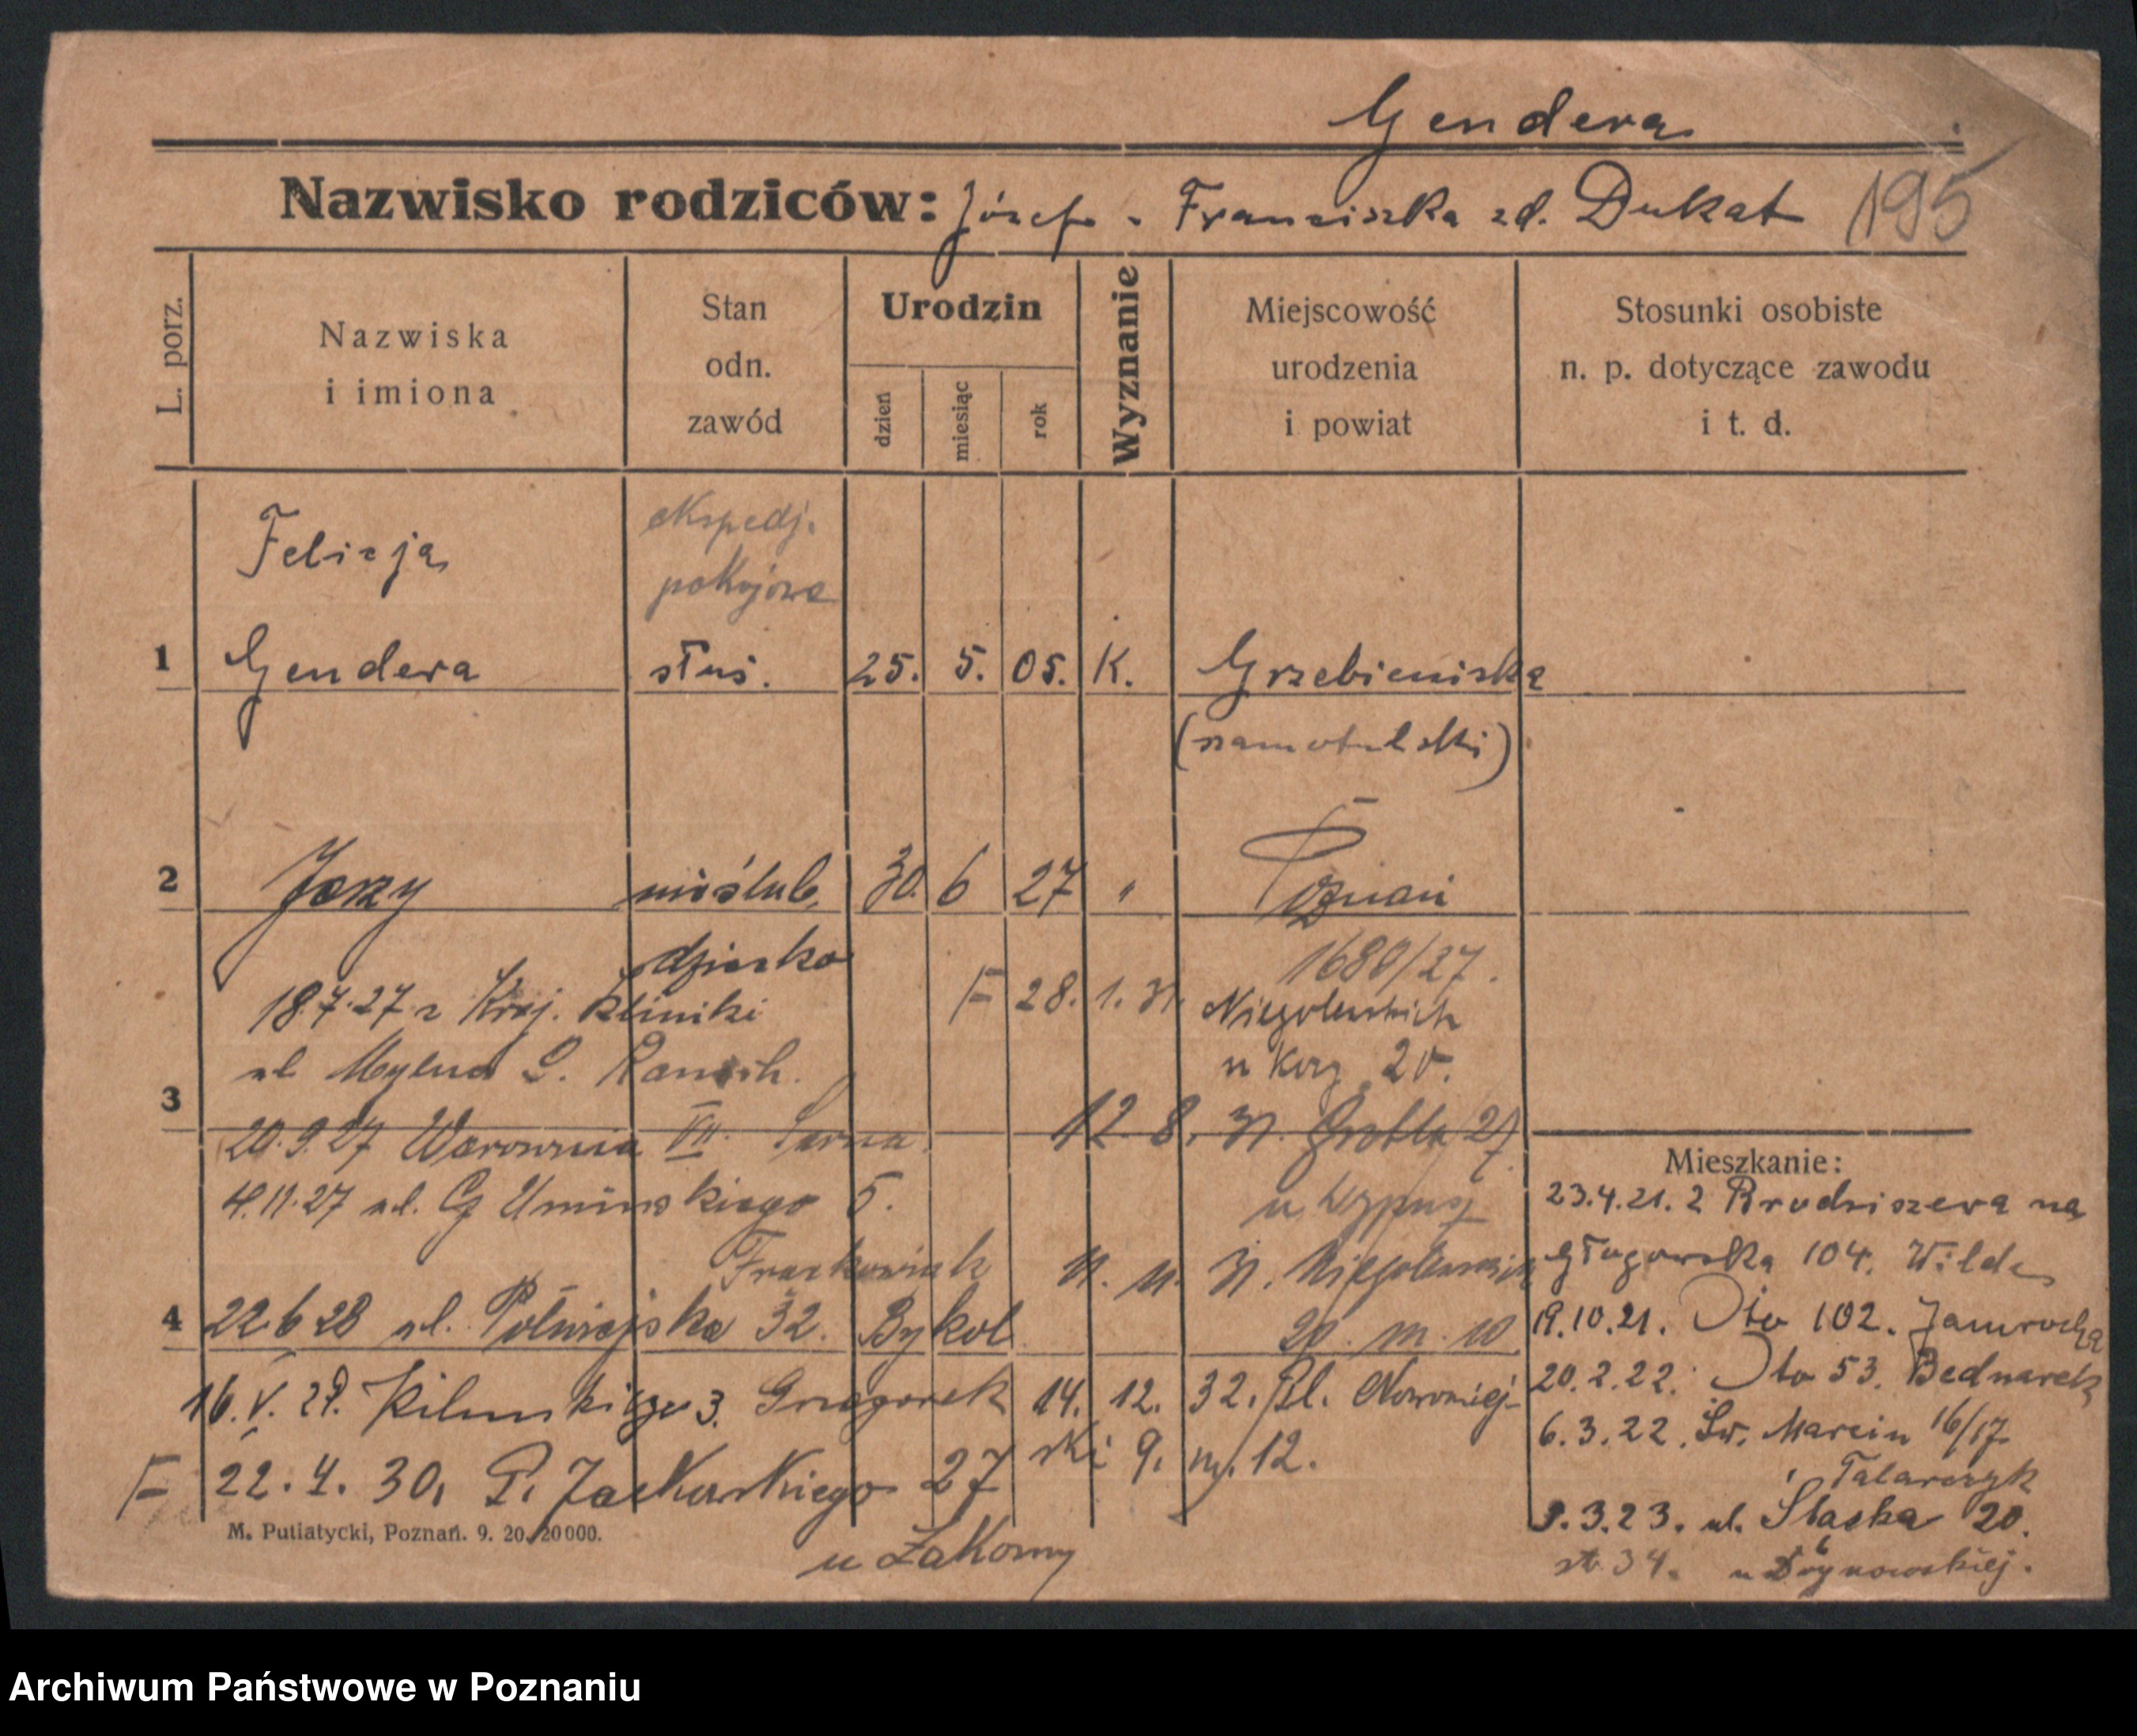 Gendera
Nazwisko rodziców: Józef - Franciszka zd. Dukat 195
L. porz.
Nazwiska
i imiona
Stan
odn.
zawód
Urodzin
dzień
miesiąc
rok
Wyznanie
Miejscowość
urodzenia
i powiat
Stosunki osobiste
n. p. dotyczące zawodu
i t. d.
ekspedj.
Felicja
pokojowa
1 Gendera służ. 25. 5. 05. K. Grzebienisko
(szamotulski)
2 Jerzy nieślub. 30. 6 27 " Poznań
dziecko
1680/27.
18.7.27 z Kraj. Kliniki
F 28. 1. 31. Niegolewskich
20.
ul.
3
20.9.27 Warownia VII.
12. 8. 31. Grobla 27
4.11.27 ul. Umińskiego 5.
Frackowiak
11. 11. 31. Niegolewskich
20. m. 10
4 22.6 28 ul. Półwiejska 32.
16.V.29. Kilińskiego 3. Grzegorek
14. 12. 32. Pl. Nowomiej-
ski 9. m. 12.
F 22. 4. 30. Zackowskiego 27
u Łakomy
Mieszkanie:
23.4.21. z Brodziszewa na
Głogowska 104. Wilde
19.10.21. Dto 102.
20.2.22. Dto 53. Bednarek
6.3.22. Św. Marcin 16/17
Talarczyk
3.23. ul. Śląska 20.
34.
M. Putiatycki, Poznań. 9. 20. 20000.
Archiwum Państwowe w Poznaniu